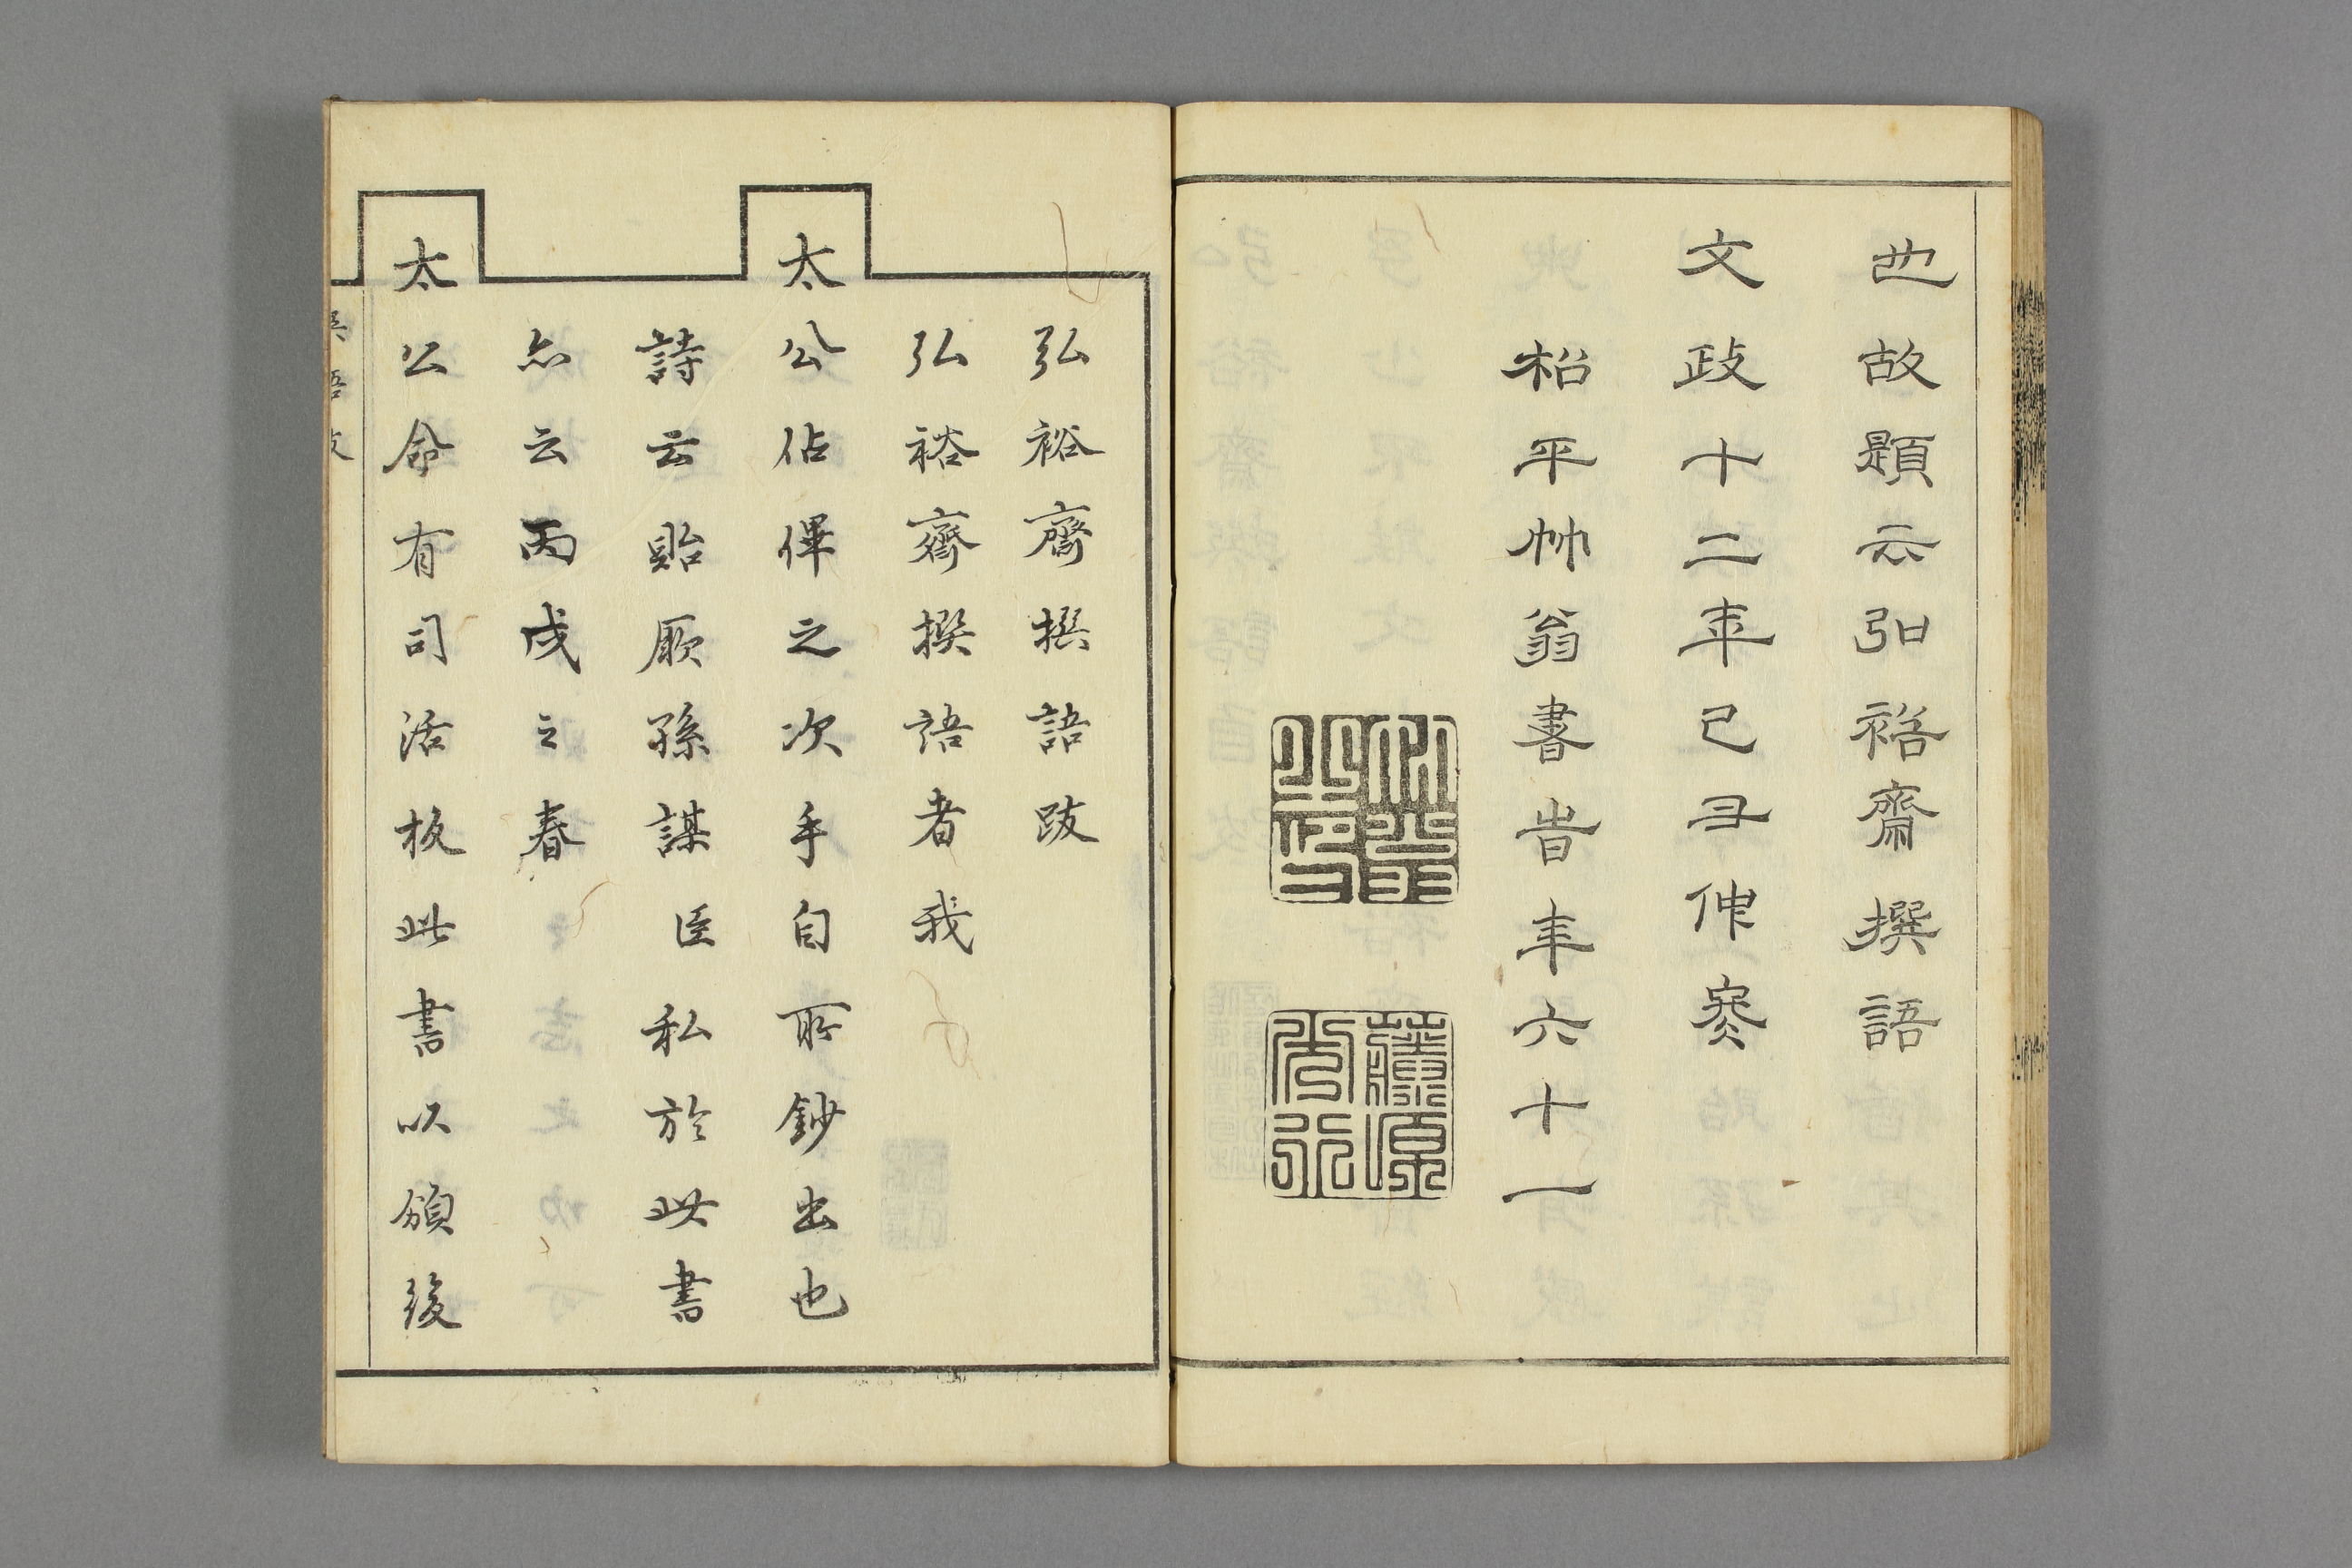 也故題云弘裕齋撰語
文政十二年己丑仲
松平翁書旹年六十一
藤原
弘裕齋撰語跋
弘裕齋撰語者我
太公佔㑻之次手自所鈔出也
詩云貽厥孫謀臣私於此書
亦云丙戌之春
太公命有司活板此書以頒後